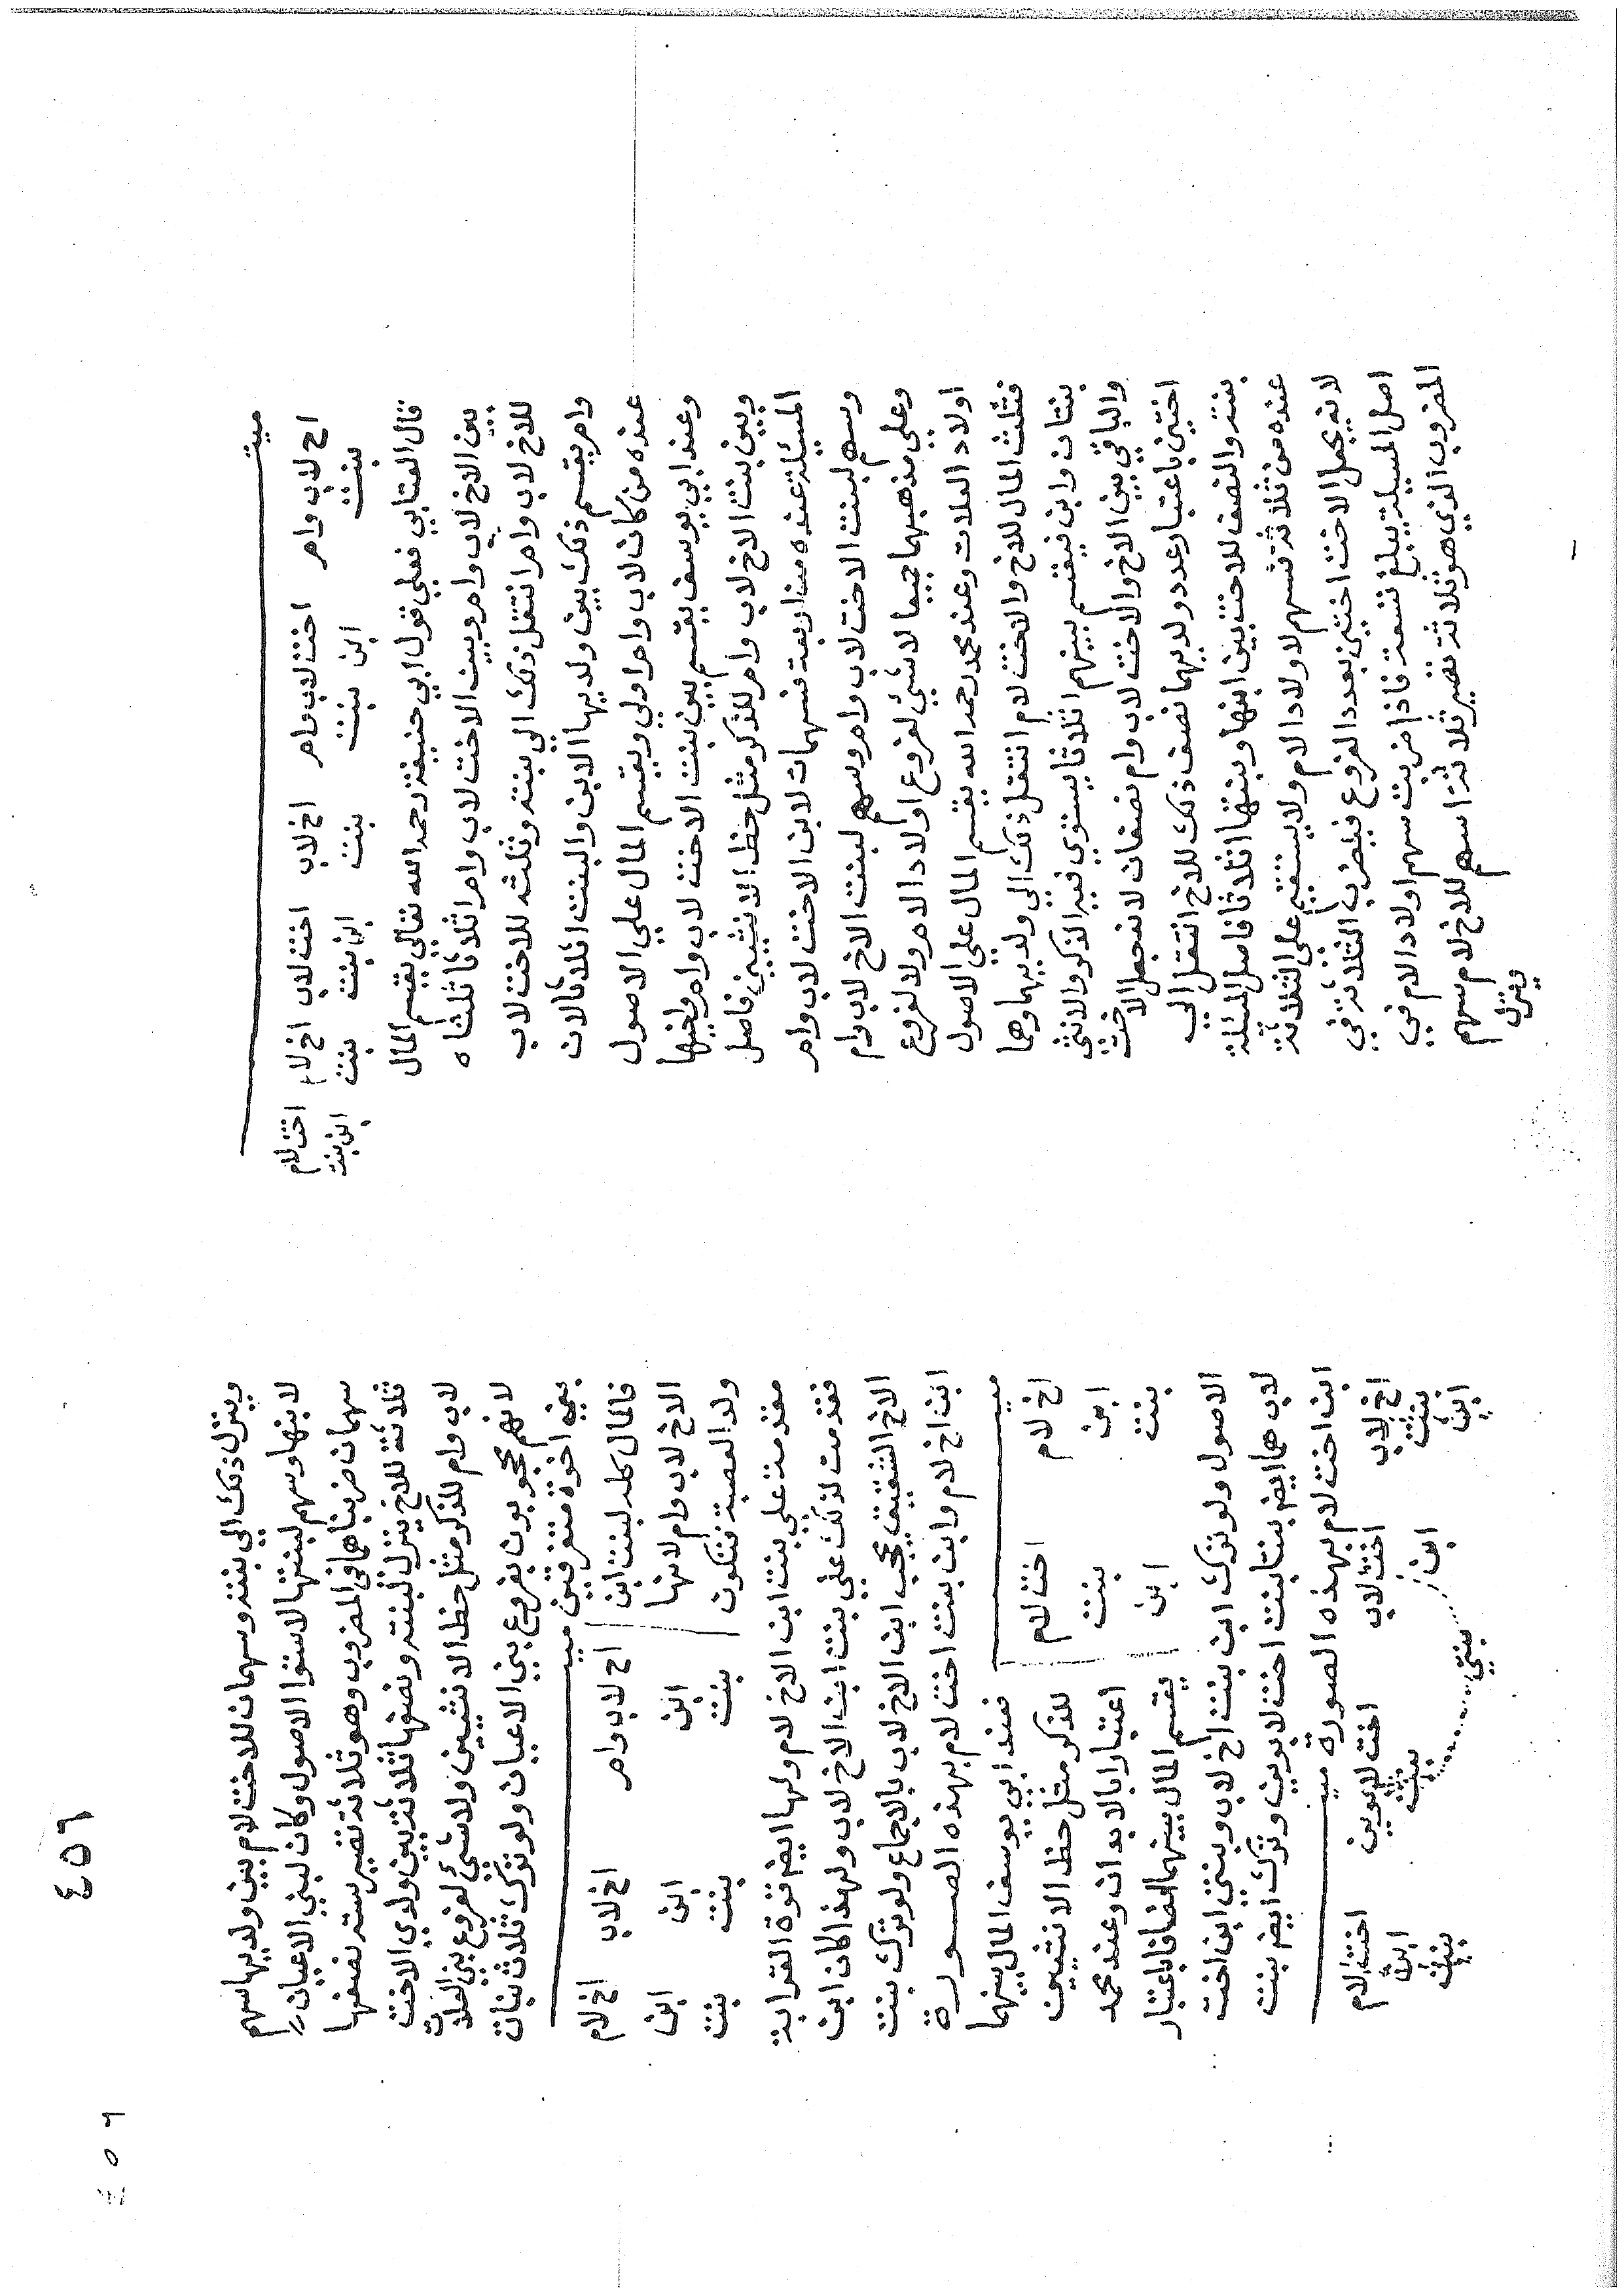 ميت
اخ لاب وام اخت لاب وام اخ لاب اخت لاب اخ لام اخت لام
بنت ابن بنت بنت ابن بنت بنت ابن بنت
قال العتابي فعلي قول ابي حنيفة رحمه الله تعالي يقسم المال
بين الاخ لاب وام وبين الاخت لاب وام اثلاثا ثلثاه
للاخ لاب وام انتقل ذلك الي بنته وثلثه للاخت لاب
وام يقسم ذلك بين ولديها الابن والبنت اثلاثا لان
عنده من كان لاب وام اولي ويقسم المال علي الاصول
وعند ابي يوسف يقسم بين بنت الاخت لاب وام واخيها
وبين بنت الاخ لاب وام للذكر مثل حظ الانثيين فاصل
المسئلة عنده من اربعة فسهمان لابن الاخت لاب وام
وسهم لبنت الاخت لاب وام وسهم لبنت الاخ لاب وام
وعلي مذهبهما جميعا لا شئ لفروع اولاد الام ولا لفروع
اولاد العلات وعند محمد رحمه الله يقسم المال علي الاصول
فثلث المال للاخ والاخت لام انتقل ذلك الي ولديهما وهما
بنتان وابن فيقسم بينهم اثلاثا يستوي فيه الذكر والانثي
والباقي بين الاخ والاخت لاب وام نصفان لانه جعل الاخت
اختين باعتبار عدد ولديهما نصف ذلك للاخ انتقل الي
بنته والنصف للاخت بين ابنها وبنتها اثلاثا فاصل المسئلة
عنده من ثلاثة فسهم لاولاد الام ولا يستقيم علي الثلاثة
لانه يجعل الاخت اختين بعدد الفروع فيضرب الثلاثة في
اصل المسيلة يبلغ تسعة فاذا ضربت سهم اولاد الام في
المضروب الذي هو ثلاثة تصير ثلاثة اسهم للاخ لام سهم
وينزل
٤٥٦
وينزل ذلك الي بنته وسهمان للاخت لام بين ولديها سهم
لابنها وسهم لبنتها لاستوا الاصول وكان لبني الاعيان
سهمان ضربناهما في المضروب وهو ثلاثة تصير ستة نصفها
ثلاثة للاخ ينزل لبنته ونصفها ثلاثة بين ولدي الاخت
لاب وام للذكر مثل حظ الانثيين ولا شئ لفروع بني العلات
لانهم محجوبون بفروع بني الاعيان ولو ترك ثلاث بنات
بني اخوة متفرقين ميت
اخ لاب وام اخ لاب اخ لام
ابن ابن ابن
بنت بنت بنت
فالمال كله لبنت ابن
الاخ لاب وام لانها
ولد العصبة فتكون
مقدمة علي بنت ابن الاخ لام ولها ايض قوة القرابة
فقدمت لذلك علي بنت ابن الاخ لاب ولهذا كان ابن
الاخ الشقيق يحجب ابن الاخ لاب بالاجماع ولو ترك بنت
ابن اخ لام وابن بنت اخت لام بهذه الصورة
ميت
اخ لام اخت لام
ابن بنت
بنت ابن
فعند ابي يوسف المال بينهما
للذكر مثل حظ الانثيين
اعتبارا بالابدان وعند محمد
يقسم المال بينهما انصافا باعتبار
الاصول ولو ترك ابن بنت اخ لاب وبنتي ابن اخت
لاب هما ايض بنتا بنت اخت لابوين وترك ايض بنت
ابن اخت لام بهذه الصورة ميت
اخ لاب اخت لاب اخت لابوين اخت لام
بنت ابن بنت ابن
ابن بنتي بنت